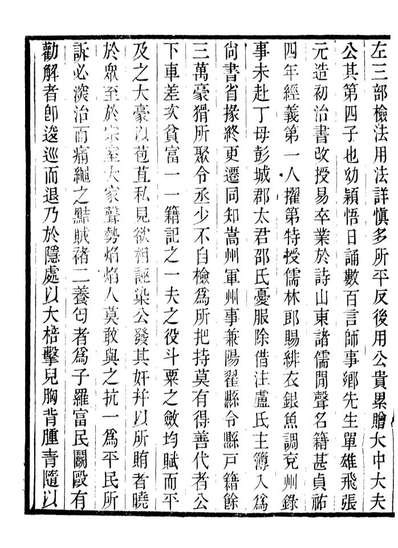 左三部檢法用法詳慎多所平反後用公貴累贈大中大夫
公其第四子也幼穎悟日誦數百言師事鄉先生單雄飛張
元造初治書改授易卒業於詩山東諸儒間聲名籍甚貞祐
四年經義第一人擢第特授儒林郎賜緋衣銀魚調兗州錄
事未赴丁母彭城郡太君邵氏憂服除借注盧氏主簿入為
尚書省掾終更遷同知嵩州軍州事兼陽翟縣令縣戸籍餘
三萬豪猾所聚令丞少不自檢為所把持莫有得善代者公
下車差次貧富一一籍記之一夫之役斗粟之斂均賦而平
及之大豪以苞苴私見欲相誣染公發其奸幷以所賄者曉
於眾至於宗室大家聲勢焰焰人莫敢與之抗一為平民所
訴必演治而痛繩之黠賊褚二養匄者為子羅富民鬬毆有
勸解者卽逡巡而退乃於隱處以大棓擊兒胸背腫青隨以